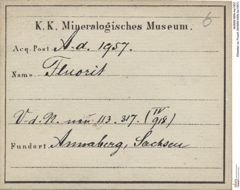 6
K. K. Mineralogisches Museum.
Acq. Post A. d. 1957.
Name Fluorit
V. d. N. neu 113. 317. (IV 918)
Fundort Annaberg, Sachsen